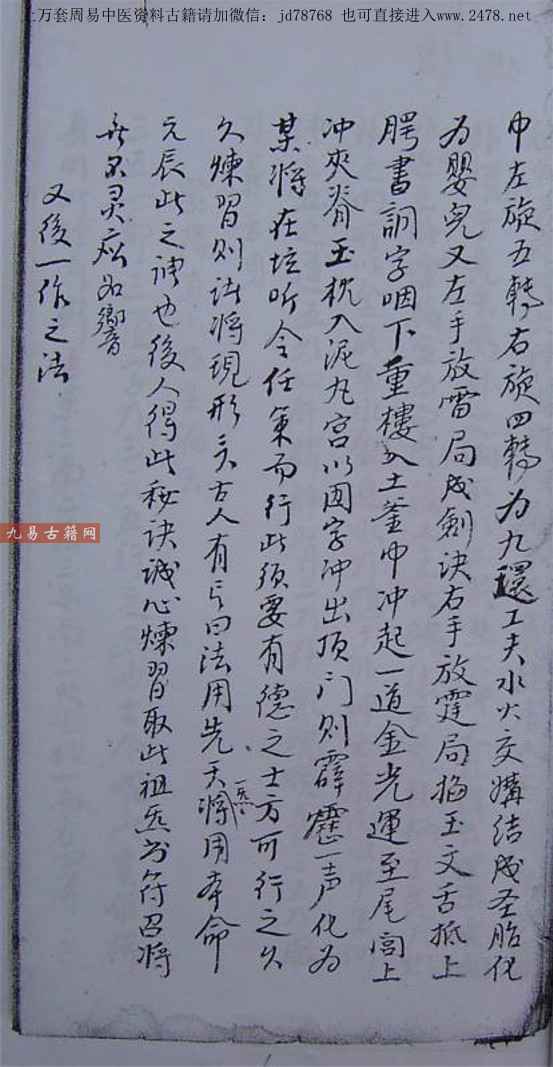 上万套周易中医资料古籍请加微信：jd78768 也可直接进入www.2478.net
中左旋五轉右旋四轉为九還工夫水火交媾结成圣胎化
为嬰兒又左手放雷局成劍决右手放霆局掐玉文舌抵上
腭書詷字咽下重樓入土釜中冲起一道金光運至尾闾上
冲夾脊玉枕入泥丸宫以囸字冲出顶门则霹靂一声化为
某将在坛听令任策而行此须要有德之士方可行之久
久煉習则諸将現形矣古人有言曰法用先天一炁将用本命
元辰此之谓也後人得此秘诀诚心煉習取此祖炁书符召将
無不灵应如響
又後一作之法
九易古籍网